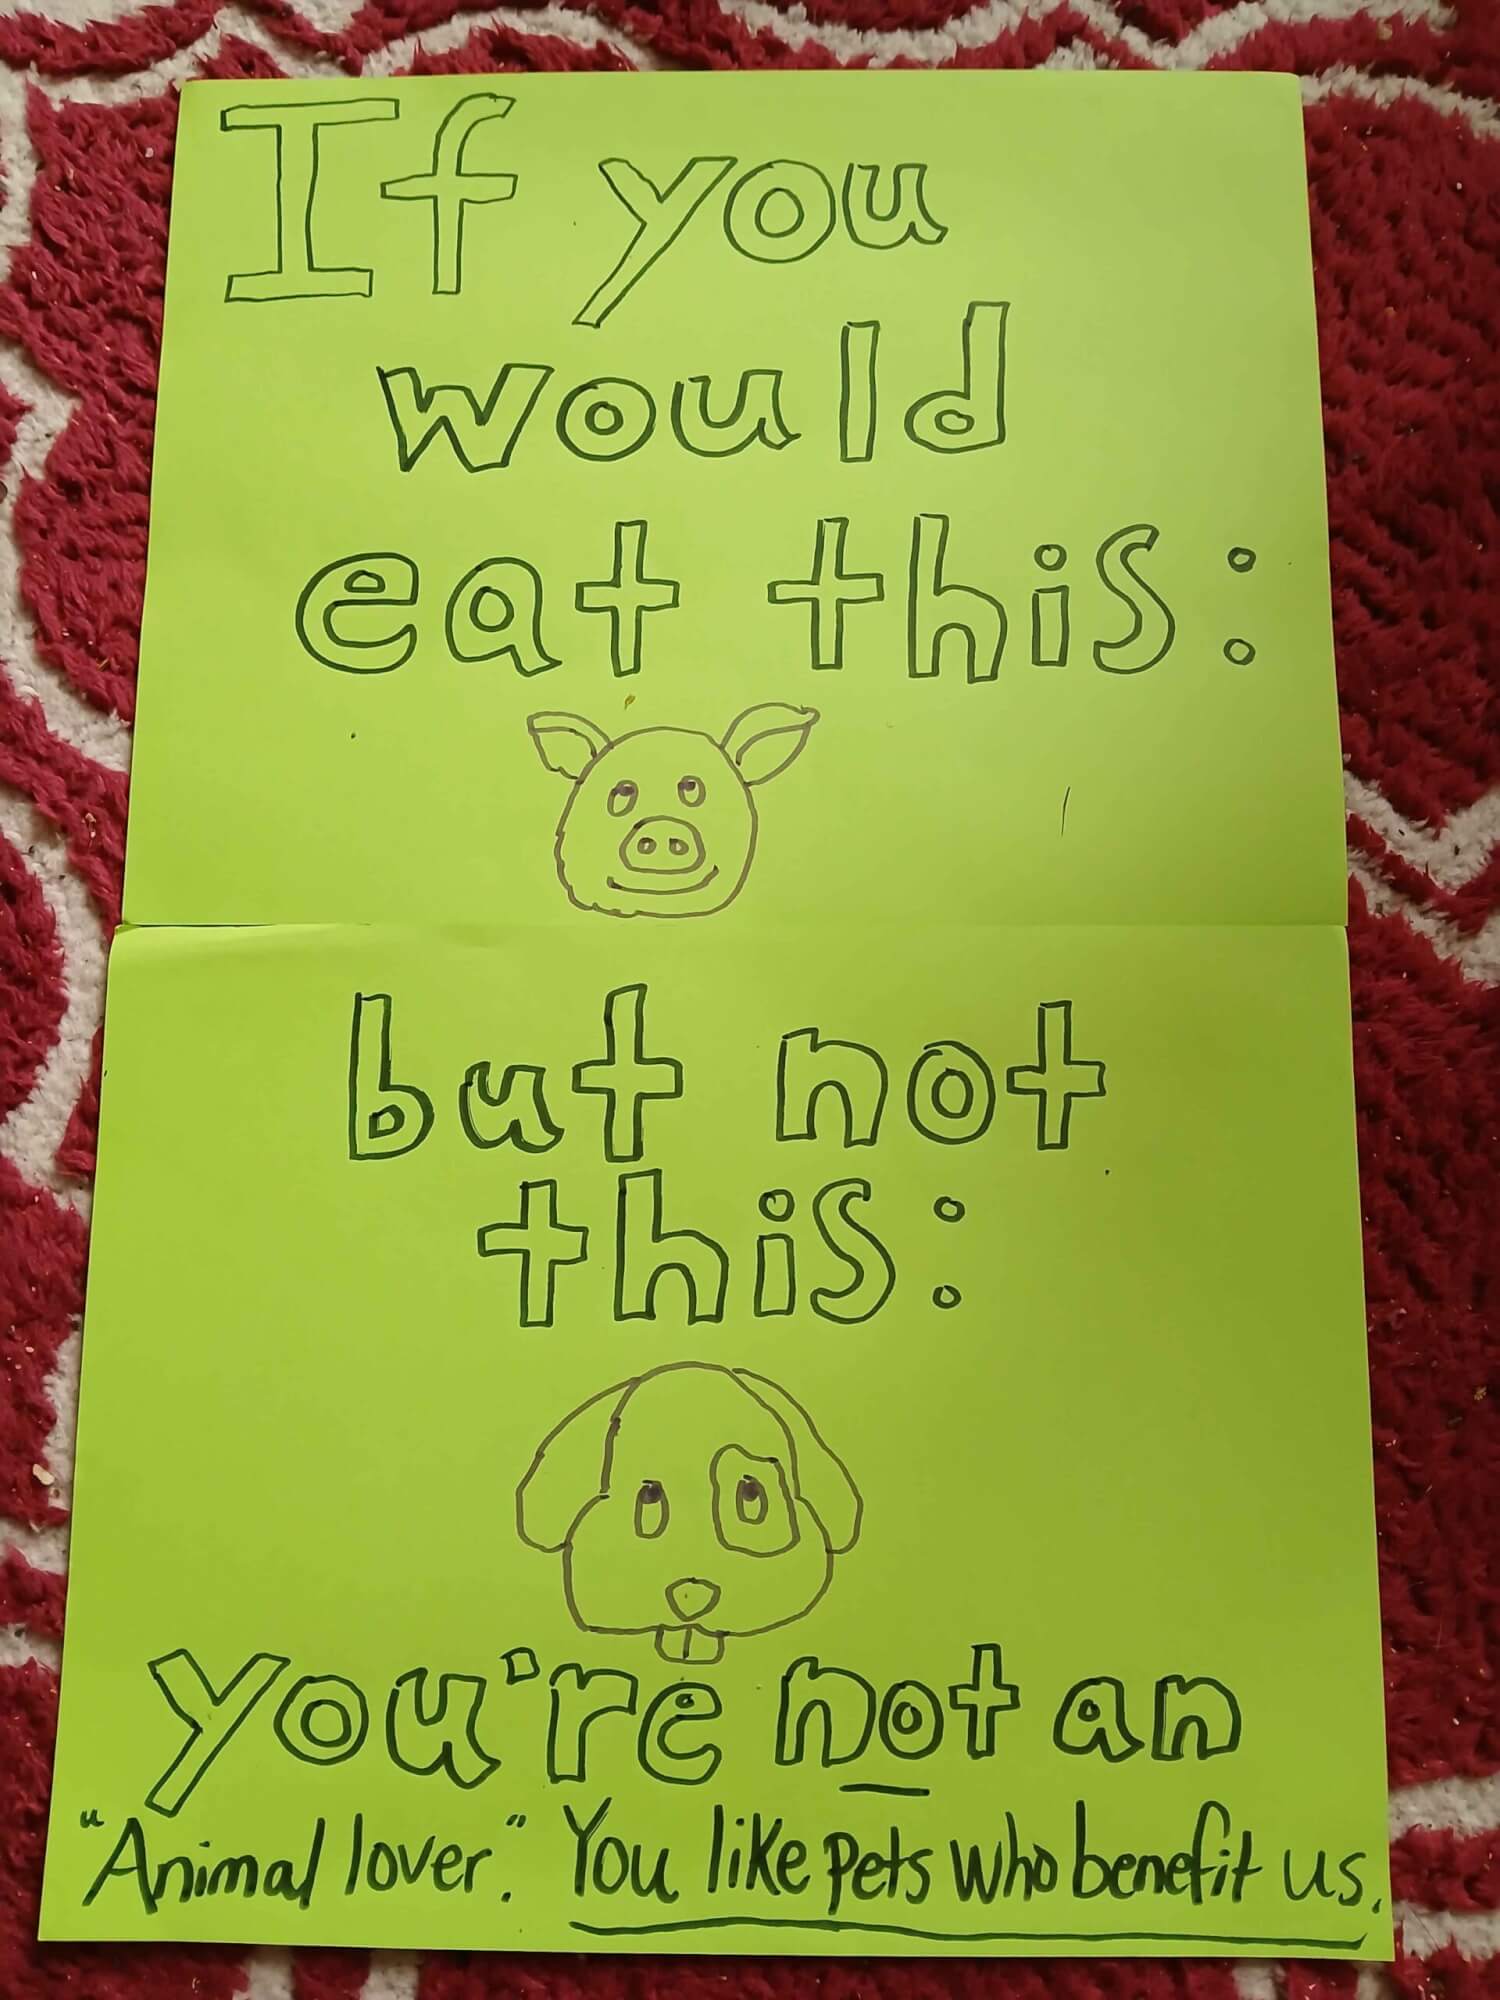 If you
would
eat this:
but not
this:
you're not an
"Animal lover." You like pets who benefit us.